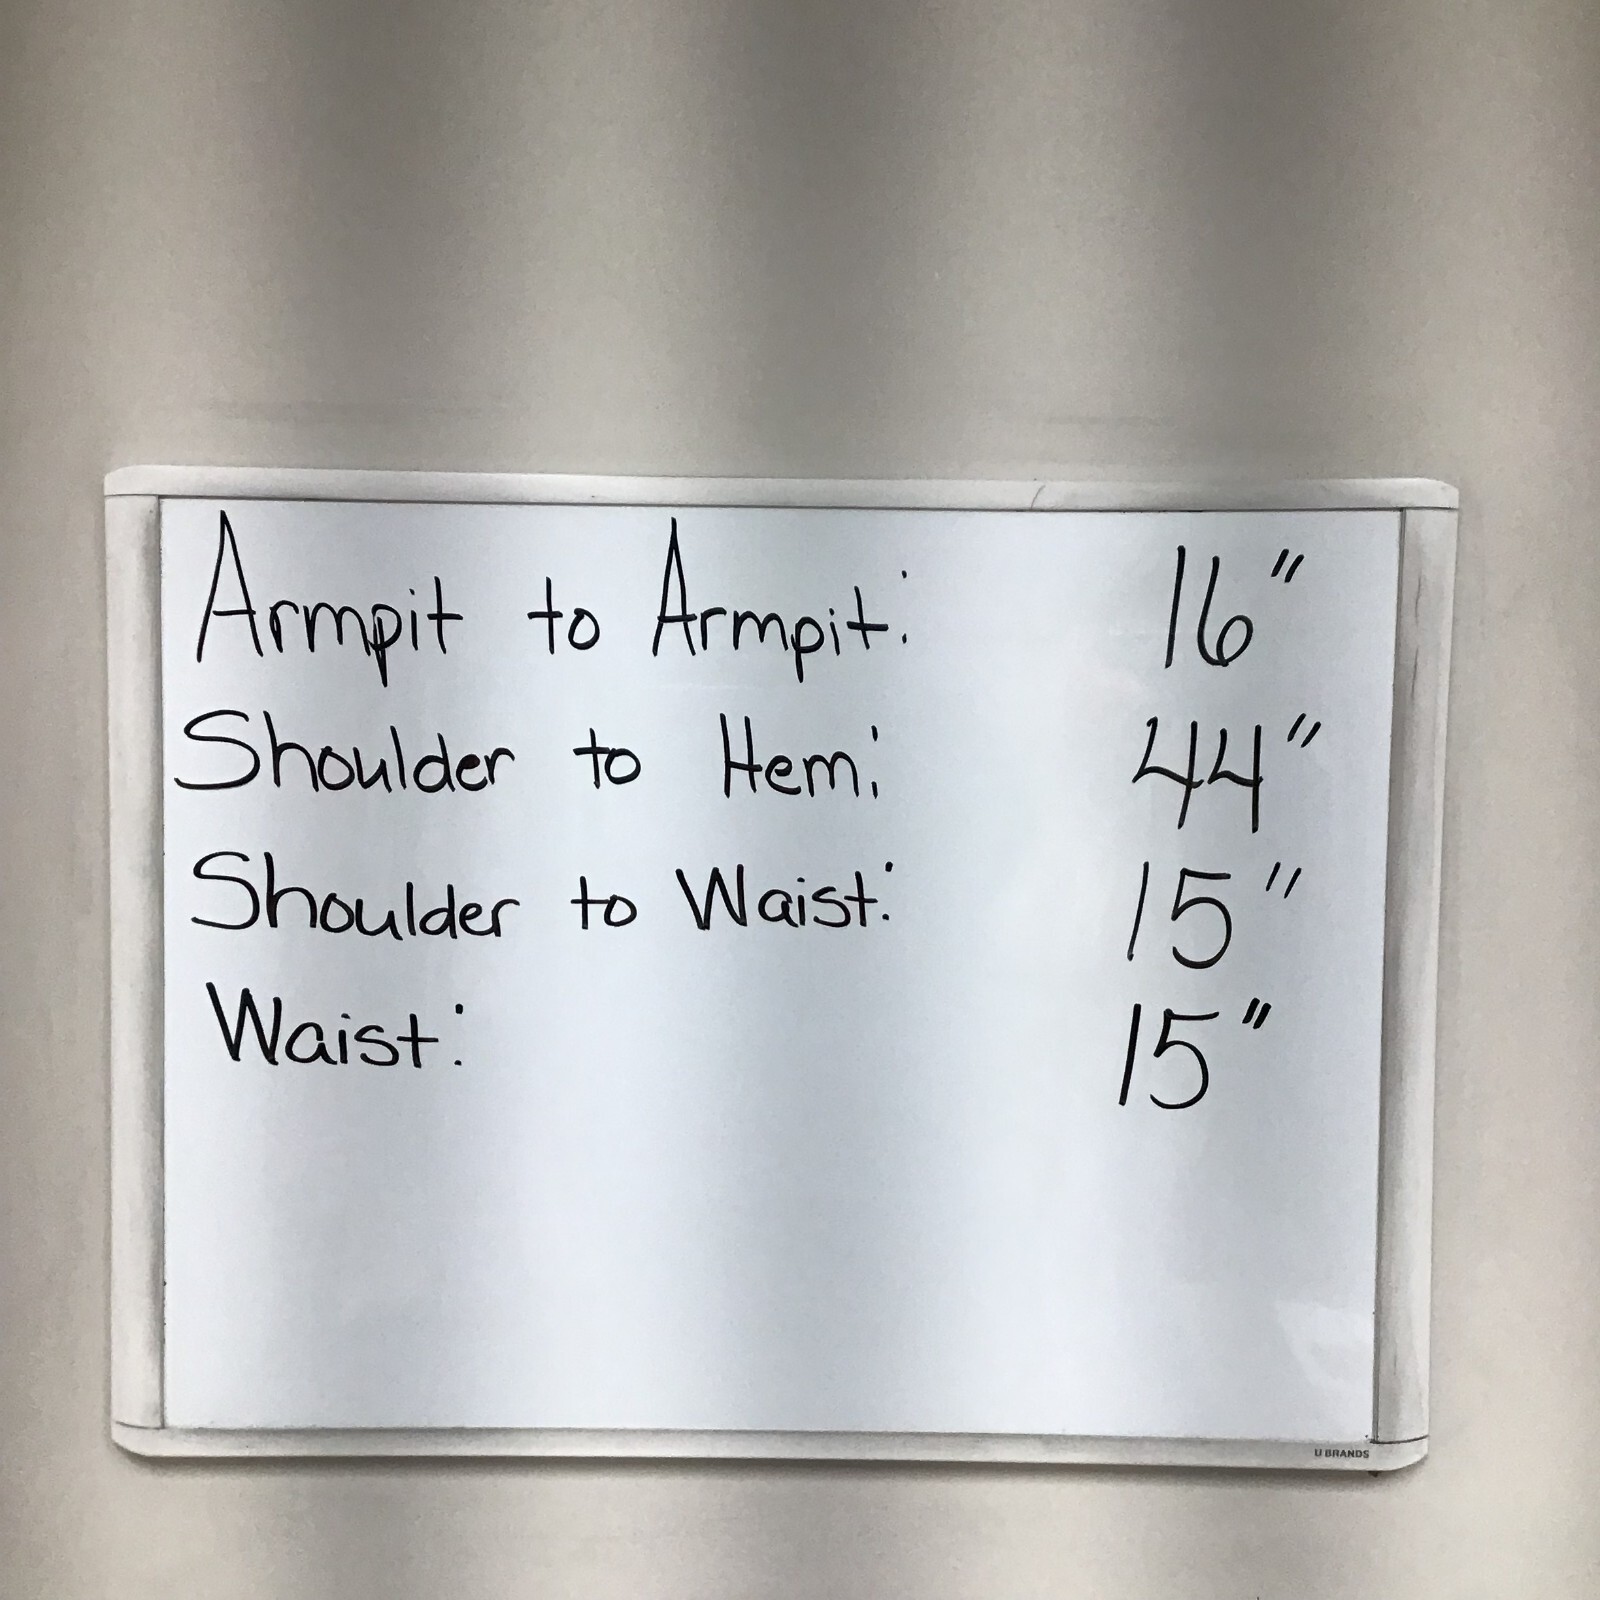 Armpit to Armpit: 16"
Shoulder to Hem: 44"
Shoulder to Waist: 15"
Waist: 15"
U BRANDS